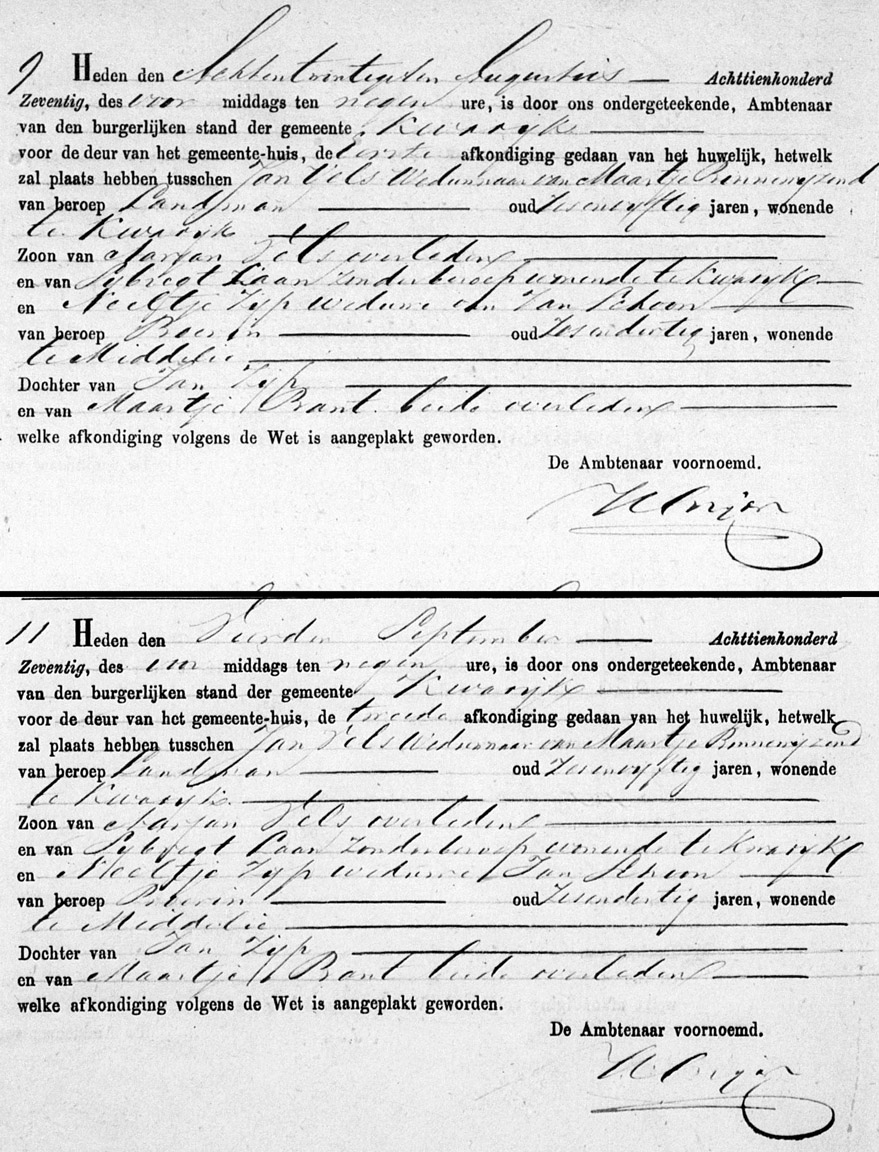 9 Heden den Achtentwintigsten Augustus Achttienhonderd
Zeventig, des voor middags ten negen ure, is door ons ondergeteekende, Ambtenaar
van den burgerlijken stand der gemeente Kwadijk
voor de deur van het gemeente-huis, de eerste afkondiging gedaan van het huwelijk, hetwelk
zal plaats hebben tusschen Jan Vels Weduwnaar van Maartje Binnenwijzend
van beroep Landman oud Zesenvijftig jaren, wonende
te Kwadijk
Zoon van Aarjan Vels overleden
en van Sijbregt Laan zonder beroep wonende te Kwadijk
en Neeltje Zijp weduwe van Jan Schoon
van beroep Boerin oud Zesendertig jaren, wonende
te Middelie
Dochter van Jan Zijp
en van Maartje Brant beide overleden
welke afkondiging volgens de Wet is aangeplakt geworden.
De Ambtenaar voornoemd.
11 Heden den Vierden September Achttienhonderd
Zeventig, des voor middags ten negen ure, is door ons ondergeteekende, Ambtenaar
van den burgerlijken stand der gemeente Kwadijk
voor de deur van het gemeente-huis, de tweede afkondiging gedaan van het huwelijk, hetwelk
zal plaats hebben tusschen Jan Vels Weduwnaar van Maartje Binnenwijzend
van beroep Landman oud Zesenvijftig jaren, wonende
te Kwadijk
Zoon van Aarjan Vels overleden
en van Sijbregt Laan zonder beroep wonende te Kwadijk
en Neeltje Zijp weduwe Jan Schoon
van beroep Boerin oud Zesendertig jaren, wonende
te Middelie
Dochter van Jan Zijp
en van Maartje Brant beide overleden
welke afkondiging volgens de Wet is aangeplakt geworden.
De Ambtenaar voornoemd.